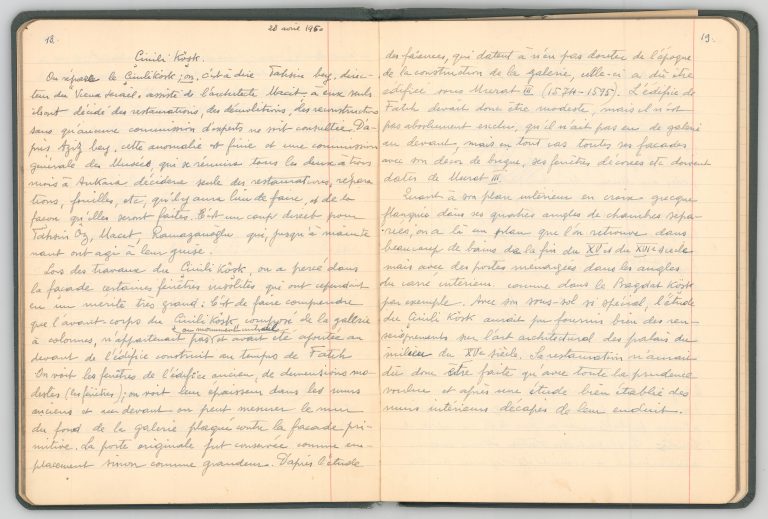 28 avril 1950
18.
Cinili Kösk.
On répare le Cinili Kösk; on, c'est à dire Tahsin bey, direc-
teur du Vieux Serail, assisté de l'architecte Macit, à eux seuls
ils ont décidé des restaurations, des démolitions, des reconstructions
sans qu'aucune commission d'experts ne soit consultée. D'a-
près Aziz bey, cette anomalie est finie et une commission
générale des Musées, qui se réunira tous les deux à trois
mois à Ankara décidera seule des restaurations, répara-
tions, fouilles, etc, qu'il y aura lieu de faire, et de la
façon qu'elles seront faites. C'est un coup direct pour
Tahsin Öz, Macit, Ramazanoğlu qui, jusqu'à mainte
nant ont agi à leur guise.
Lors des travaux du Cinili Kösk, on a percé dans
la façade certaines fenêtres insolites qui ont cependant
eu un mérite très grand: C'est de faire comprendre
que l'avant-corps du Cinili Kösk composé de la gallerie
à colonnes, n'appartenait pas au monument initial et avait été ajoutée au
devant de l'édifice construit au temps de Fatih
On voit les fenêtres de l'édifice ancien, de dimensions mo-
destes (les fenêtres); on voit leur épaisseur dans les murs
anciens et au devant on peut mesurer le mur
du fond de la galerie plaqué contre la façade pri-
mitive. La porte originale fut conservée comme em-
placement sinon comme grandeur. D'après l'étude
19.
des faïences, qui datent à n'en pas douter de l'époque
de la construction de la galerie, celle-ci a dû être
édifiée sous Murat III (1574-1595). L'édifice de
Fatih devait donc être modeste, mais il n'est
pas absolument exclu, qu'il n'ait pas eu de galerie
au devant, mais en tout cas toutes ses façades
avec son décor de brique, ses fenêtres décorées etc doivent
dater de Murat III.
Quant à son plan intérieur en croix grecque
flanquée dans ses quatre angles de chambres sépa-
rées, on a là un plan que l'on retrouve dans
beaucoup de bains de la fin du XV et du XVIe siècle
mais avec des portes menagées dans les angles
du carré intérieur comme dans le Bagdat Kösk
par exemple. Avec son sous-sol si spécial, l'étude
du Cinili Kösk aurait pu fournir bien des ren-
seignements sur l'art architectural des palais du
milieu du XVe siècle. Sa restauration n'aurait
dû donc être faite qu'avec toute la prudence
voulue et après une étude bien établie des
murs intérieurs décapés de leur enduit.